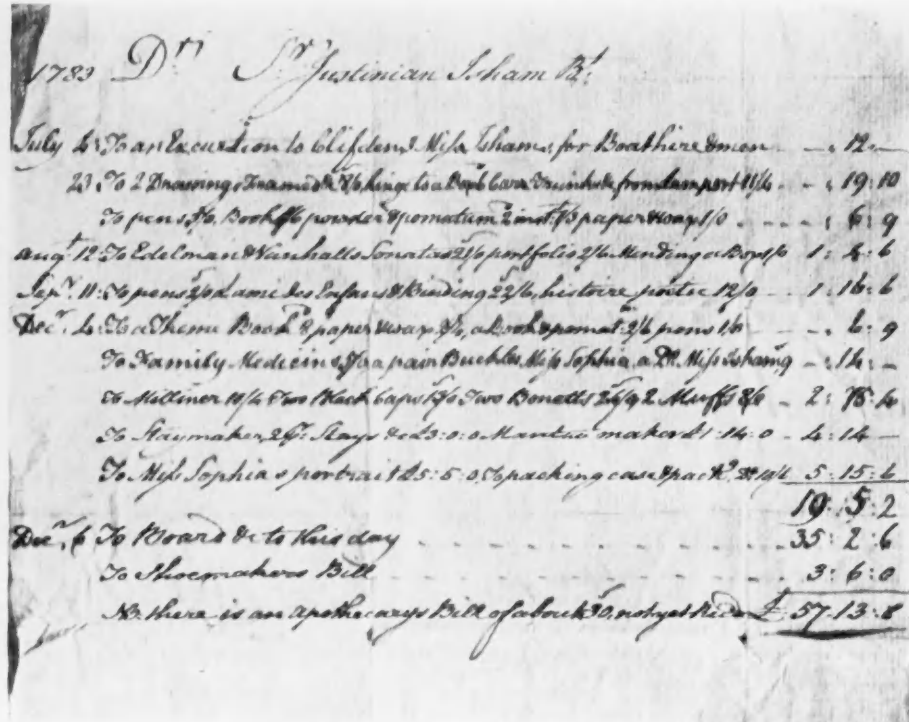 1783 Dr. Sr. Justinian Isham Bt.
July 4: To an Excursion to Clifden & Miss Ishams, for Boathire & men - - : 12 -
23 To 2 Drawings Framed & hinge to a Box & Cara. Trunk &c from Lamport 11/4 - - : 19 : 10
To pens Book powder & pomatum paper & wax 1/0 - - - - : 6 : 9
Augt. 12 To Edelman & Vanhalls Sonatas portfolio 2/6 Mending a Box 1 : : 6
Sepr. 11: To pens L'ami des Enfans & Binding 22/6, histoire poetic 12/0 - 1 : 16 : 6
Decr. 4 To a Theme Book & paper & wax a Book & pomat: 2/6 pens - : 6 : 9
To Family Medicine a pair Buckles Miss Sophia, a Do. Miss Isham - : 14 : -
To Milliner Two Black Caps Two Bonetts 2 Muffs - 2 : 18 : 4
To Staymaker Stays &c £3 : 0 : 0 Mantua maker £1 : 14 : 0 - 4 : 14 -
To Miss Sophia's portrait £5 : 5 : 0, To packing case & pack 5 : 15 : 6
19 : 5 : 2
Decr. 6 To Board &c to this day - - - - - 35 : 2 : 6
To Shoemakers Bill - - - - - 3 : 6 : 0
NB. there is an Apothecarys Bill of about not yet £ 57 : 13 : 8